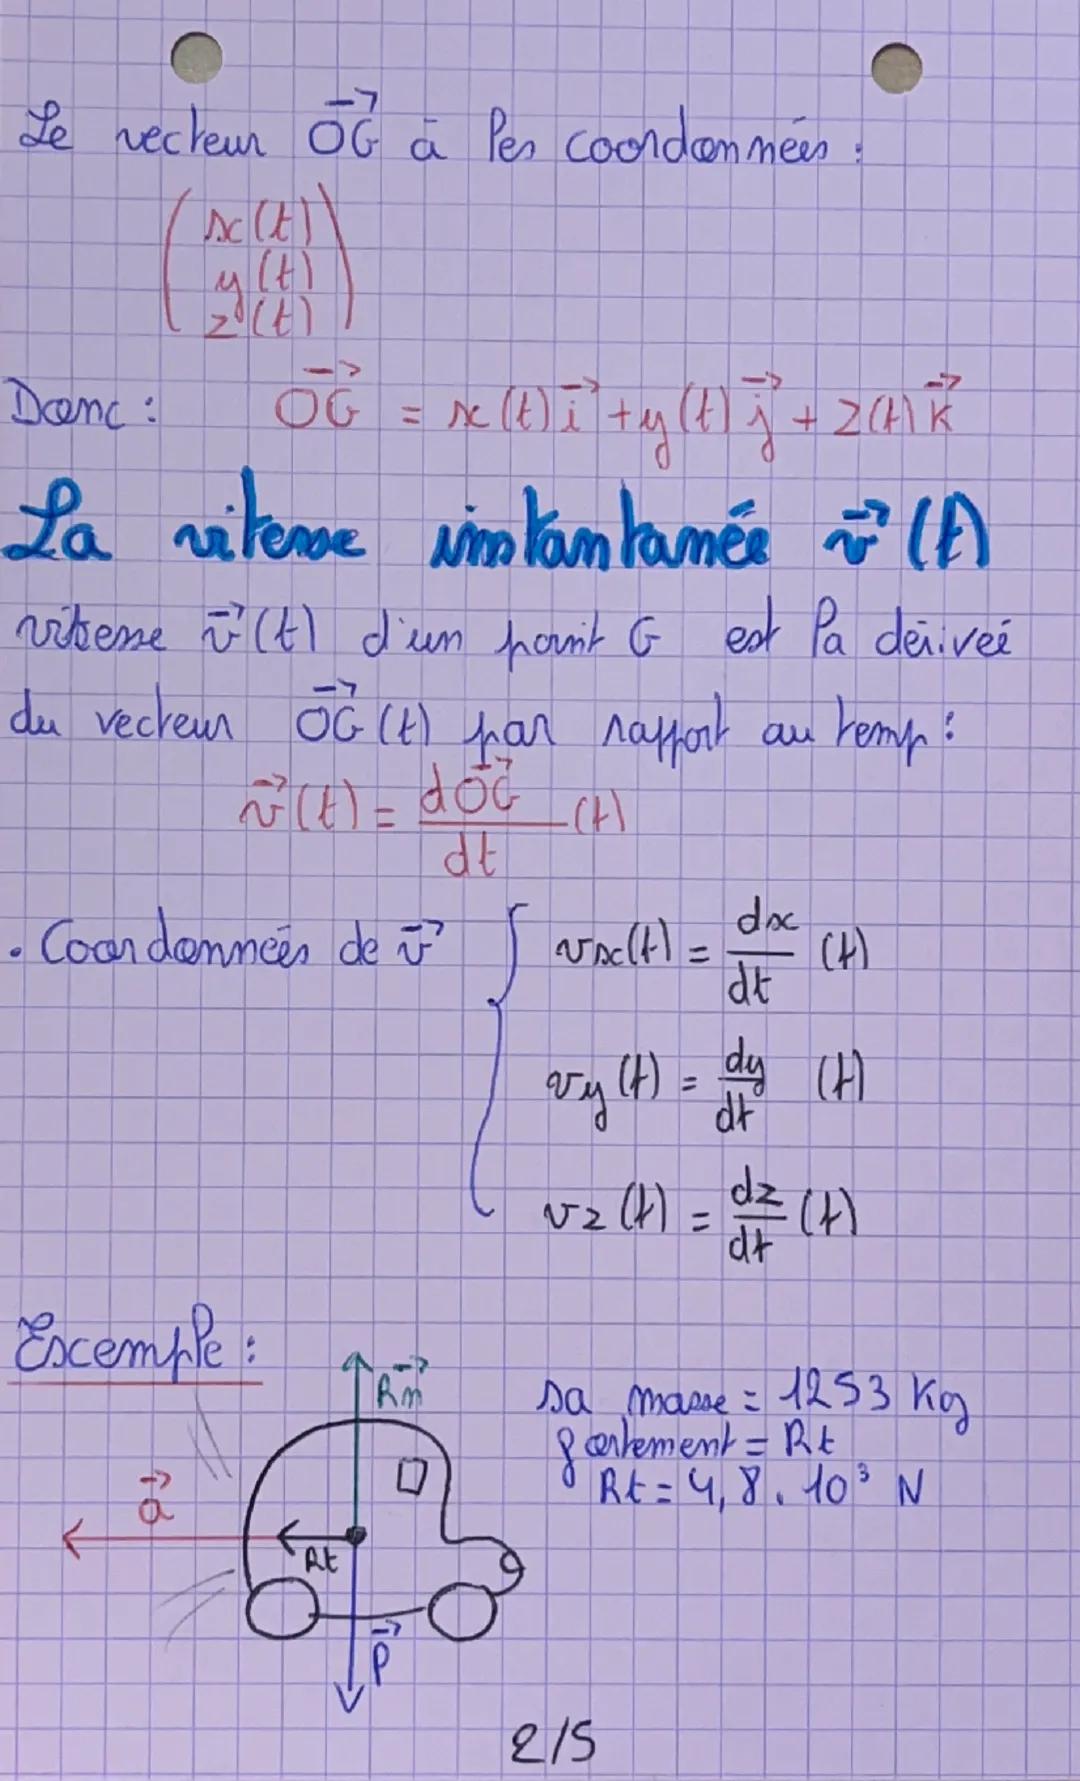 Le vecteur OG⃗ à les coordonnées :
(x(t)
y(t)
z(t))
Donc : OG⃗ = x(t) i⃗ + y(t) j⃗ + z(t) k⃗
La vitesse instantanée v⃗(t)
vitesse v⃗(t) d'un point G est la dérivée
du vecteur OG⃗(t) par rapport au temp :
v⃗(t) = dOG⃗/dt (t)
. Coordonnées de v⃗ { vx(t) = dx/dt (t)
vy(t) = dy/dt (t)
vz(t) = dz/dt (t)
Exemple :
Rn⃗
sa masse = 1253 Kg
frottement = Rt
Rt = 4,8 . 10³ N
a⃗
Rt
P⃗
2/5